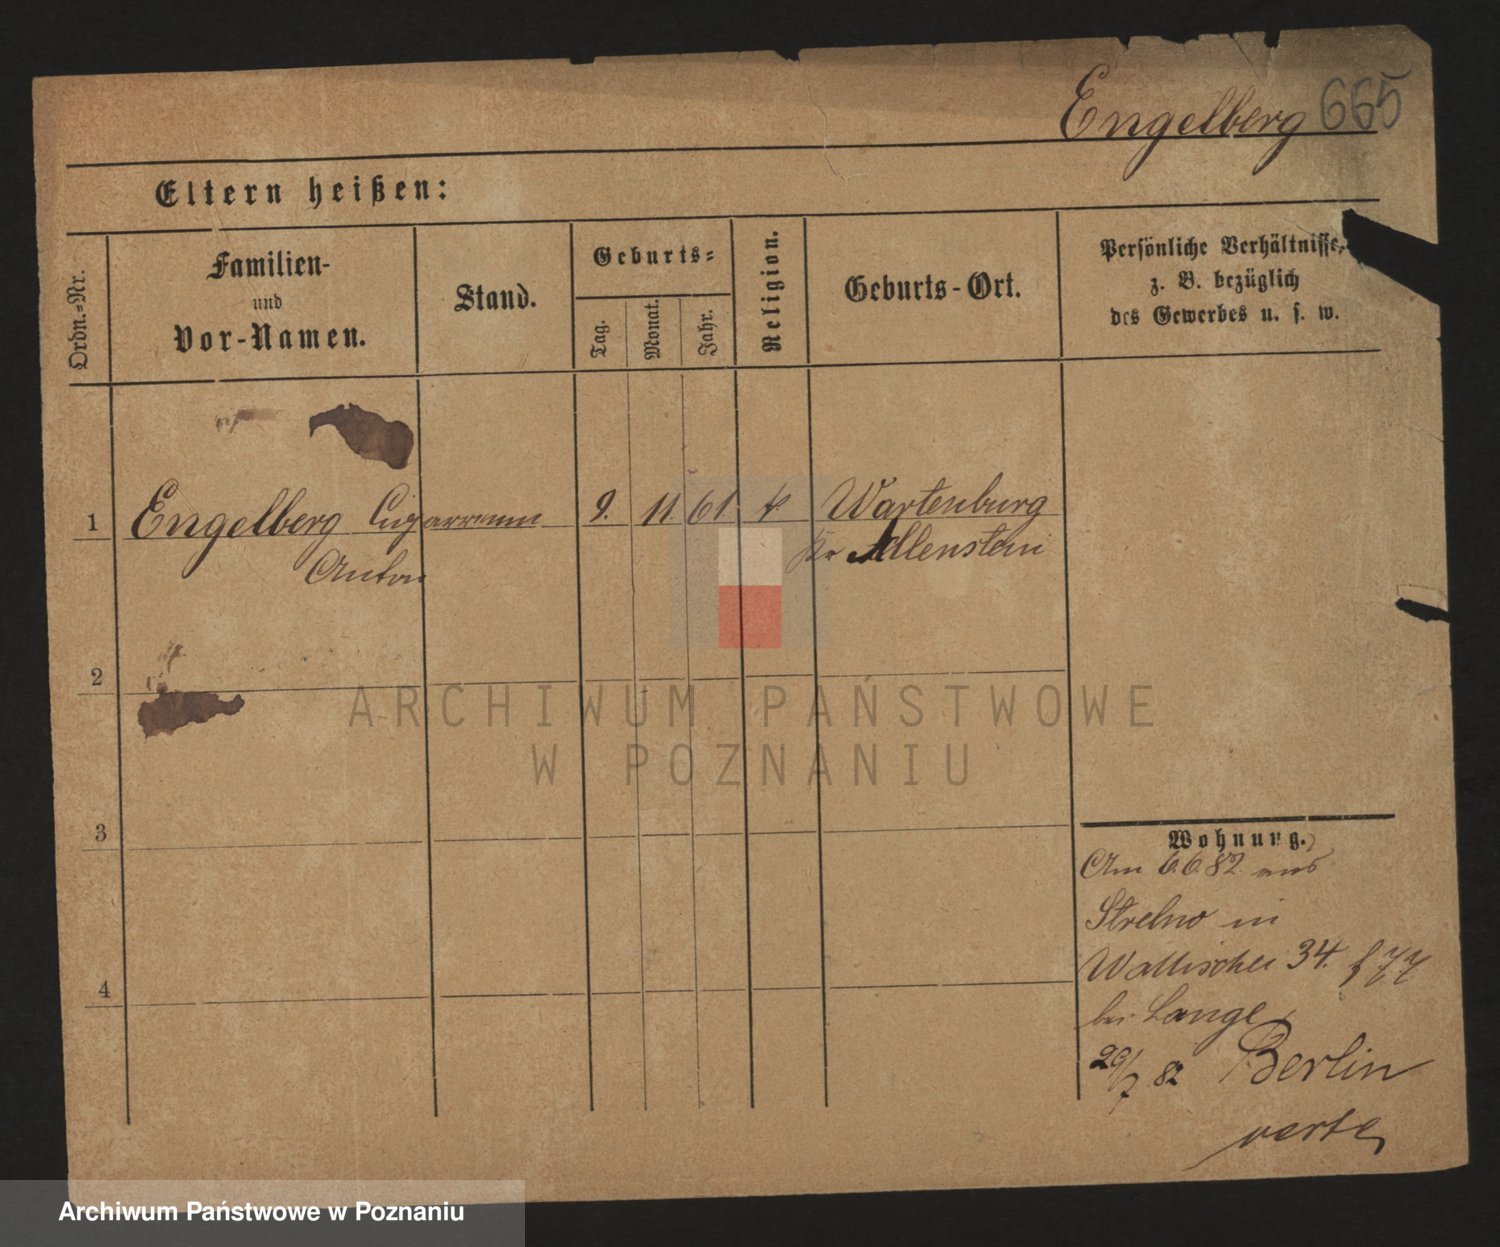 Engelberg 665
Eltern heißen:
Ordn.-Nr.
Familien-
und
Vor-Namen.
Stand.
Geburts-
Tag.
Monat.
Jahr.
Religion.
Geburts-Ort.
Persönliche Verhältnisse,
z. B. bezüglich
des Gewerbes u. s. w.
1 Engelberg 9. 11 61 Wartenburg
Anton Kr Allenstein
2
3
4
Wohnung.
Am 6.6 82 aus
Strelno in
Wallischei 34.
bei Lange
29/7 82 Berlin
verte
ARCHIWUM PAŃSTWOWE
W POZNANIU
Archiwum Państwowe w Poznaniu